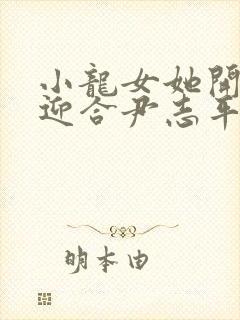 小龍女她開
迎合尹志平
明本由